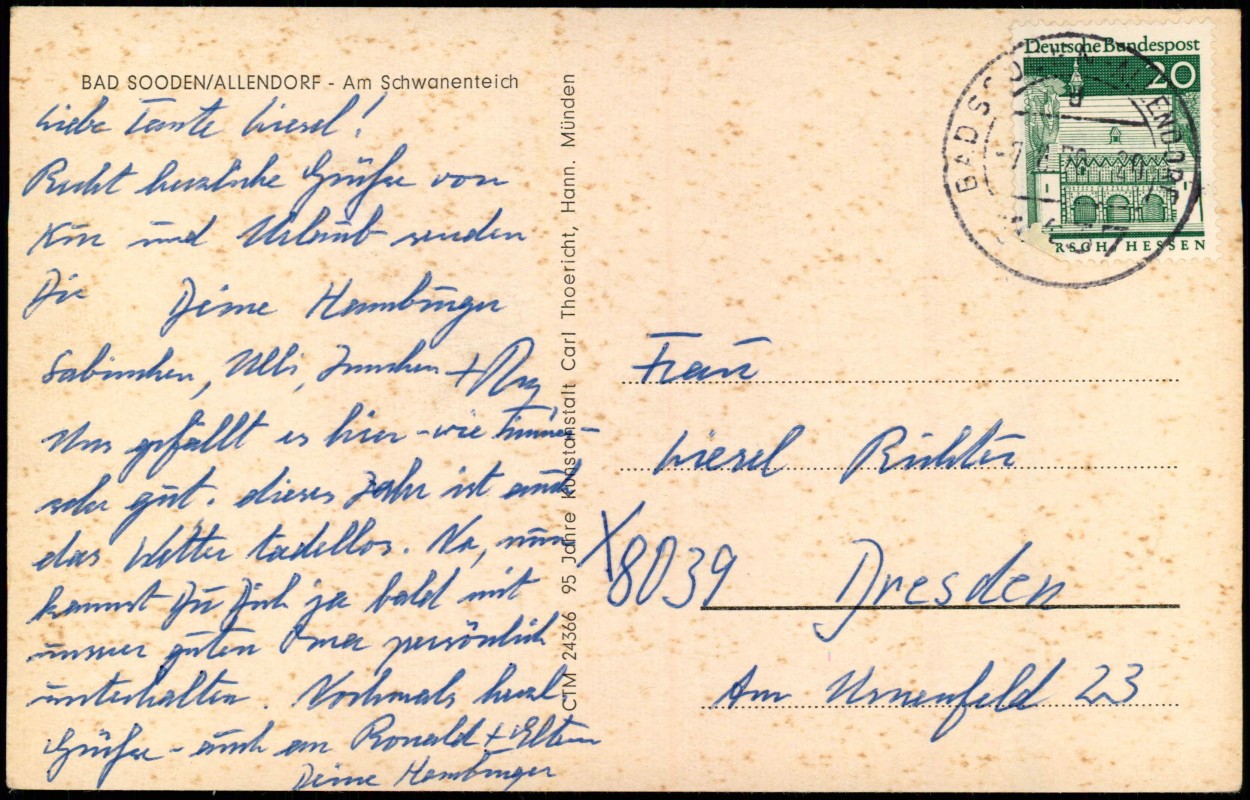 BAD SOODEN/ALLENDORF - Am Schwanenteich
Liebe Tante Liesel!
Recht herzliche Grüße von
Kur und Urlaub senden
Dir Deine Hamburger
Sabinchen, Ulli, +
Uns gefällt es hier - wie immer -
sehr gut. dieses Jahr ist auch
das Wetter tadellos. Na, nun
kannst Du Dich ja bald mit
unserer guten Oma persönlich
unterhalten. Nochmals herzl
Grüße - auch an Ronald + Eltern
Deine Hamburger
CTM 24366 95 Jahre Kunstanstalt Carl Thoericht, Hann. Münden
Deutsche Bundespost
20
RSCH/HESSEN
BAD SOODEN-ALLENDORF
Frau
Liesel Richter
X8039 Dresden
Am Urnenfeld 23